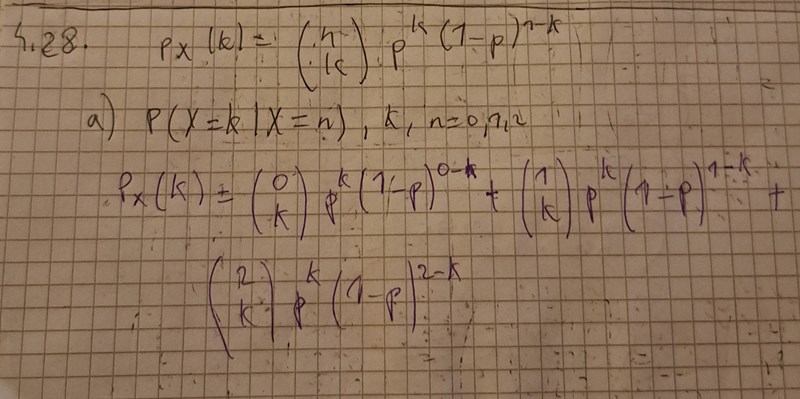 4.28. p_X(k) = \binom{n}{k} p^k (1-p)^{n-k}
a) P(X=k | X=n), k, n=0,1,2
P_X(k) = \binom{0}{k} p^k (1-p)^{0-k} + \binom{1}{k} p^k (1-p)^{1-k} +
\binom{2}{k} p^k (1-p)^{2-k}